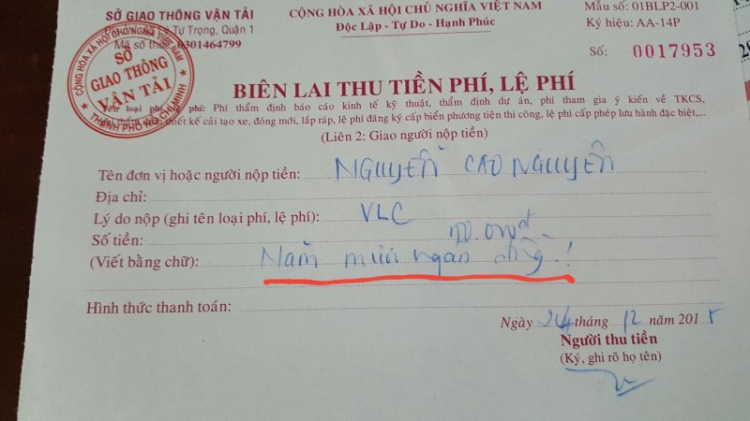 SỞ GIAO THÔNG VẬN TẢI
CỘNG HÒA XÃ HỘI CHỦ NGHĨA VIỆT NAM
Mẫu số: 01BLP2-001
Tự Trọng, Quận 1
Độc Lập - Tự Do - Hạnh Phúc
Ký hiệu: AA-14P
Mã số thuế: 0301464799
Số: 0017953
CỘNG HÒA XÃ HỘI CHỦ NGHĨA VIỆT NAM
SỞ
GIAO THÔNG
VẬN TẢI
THÀNH PHỐ HỒ CHÍ MINH
BIÊN LAI THU TIỀN PHÍ, LỆ PHÍ
loại phí, lệ phí: Phí thẩm định báo cáo kinh tế kỹ thuật, thẩm định dự án, phí tham gia ý kiến về TKCS,
thiết kế cải tạo xe, đóng mới, lắp ráp, lệ phí đăng ký cấp biển phương tiện thi công, lệ phí cấp phép lưu hành đặc biệt,...
(Liên 2: Giao người nộp tiền)
Tên đơn vị hoặc người nộp tiền: NGUYỄN CAO NGUYÊN
Địa chỉ:
Lý do nộp (ghi tên loại phí, lệ phí): VLC
Số tiền:
(Viết bằng chữ): Năm mươi ngàn đồng!
Hình thức thanh toán:
Ngày 24 tháng 12 năm 201
Người thu tiền
(Ký, ghi rõ họ tên)